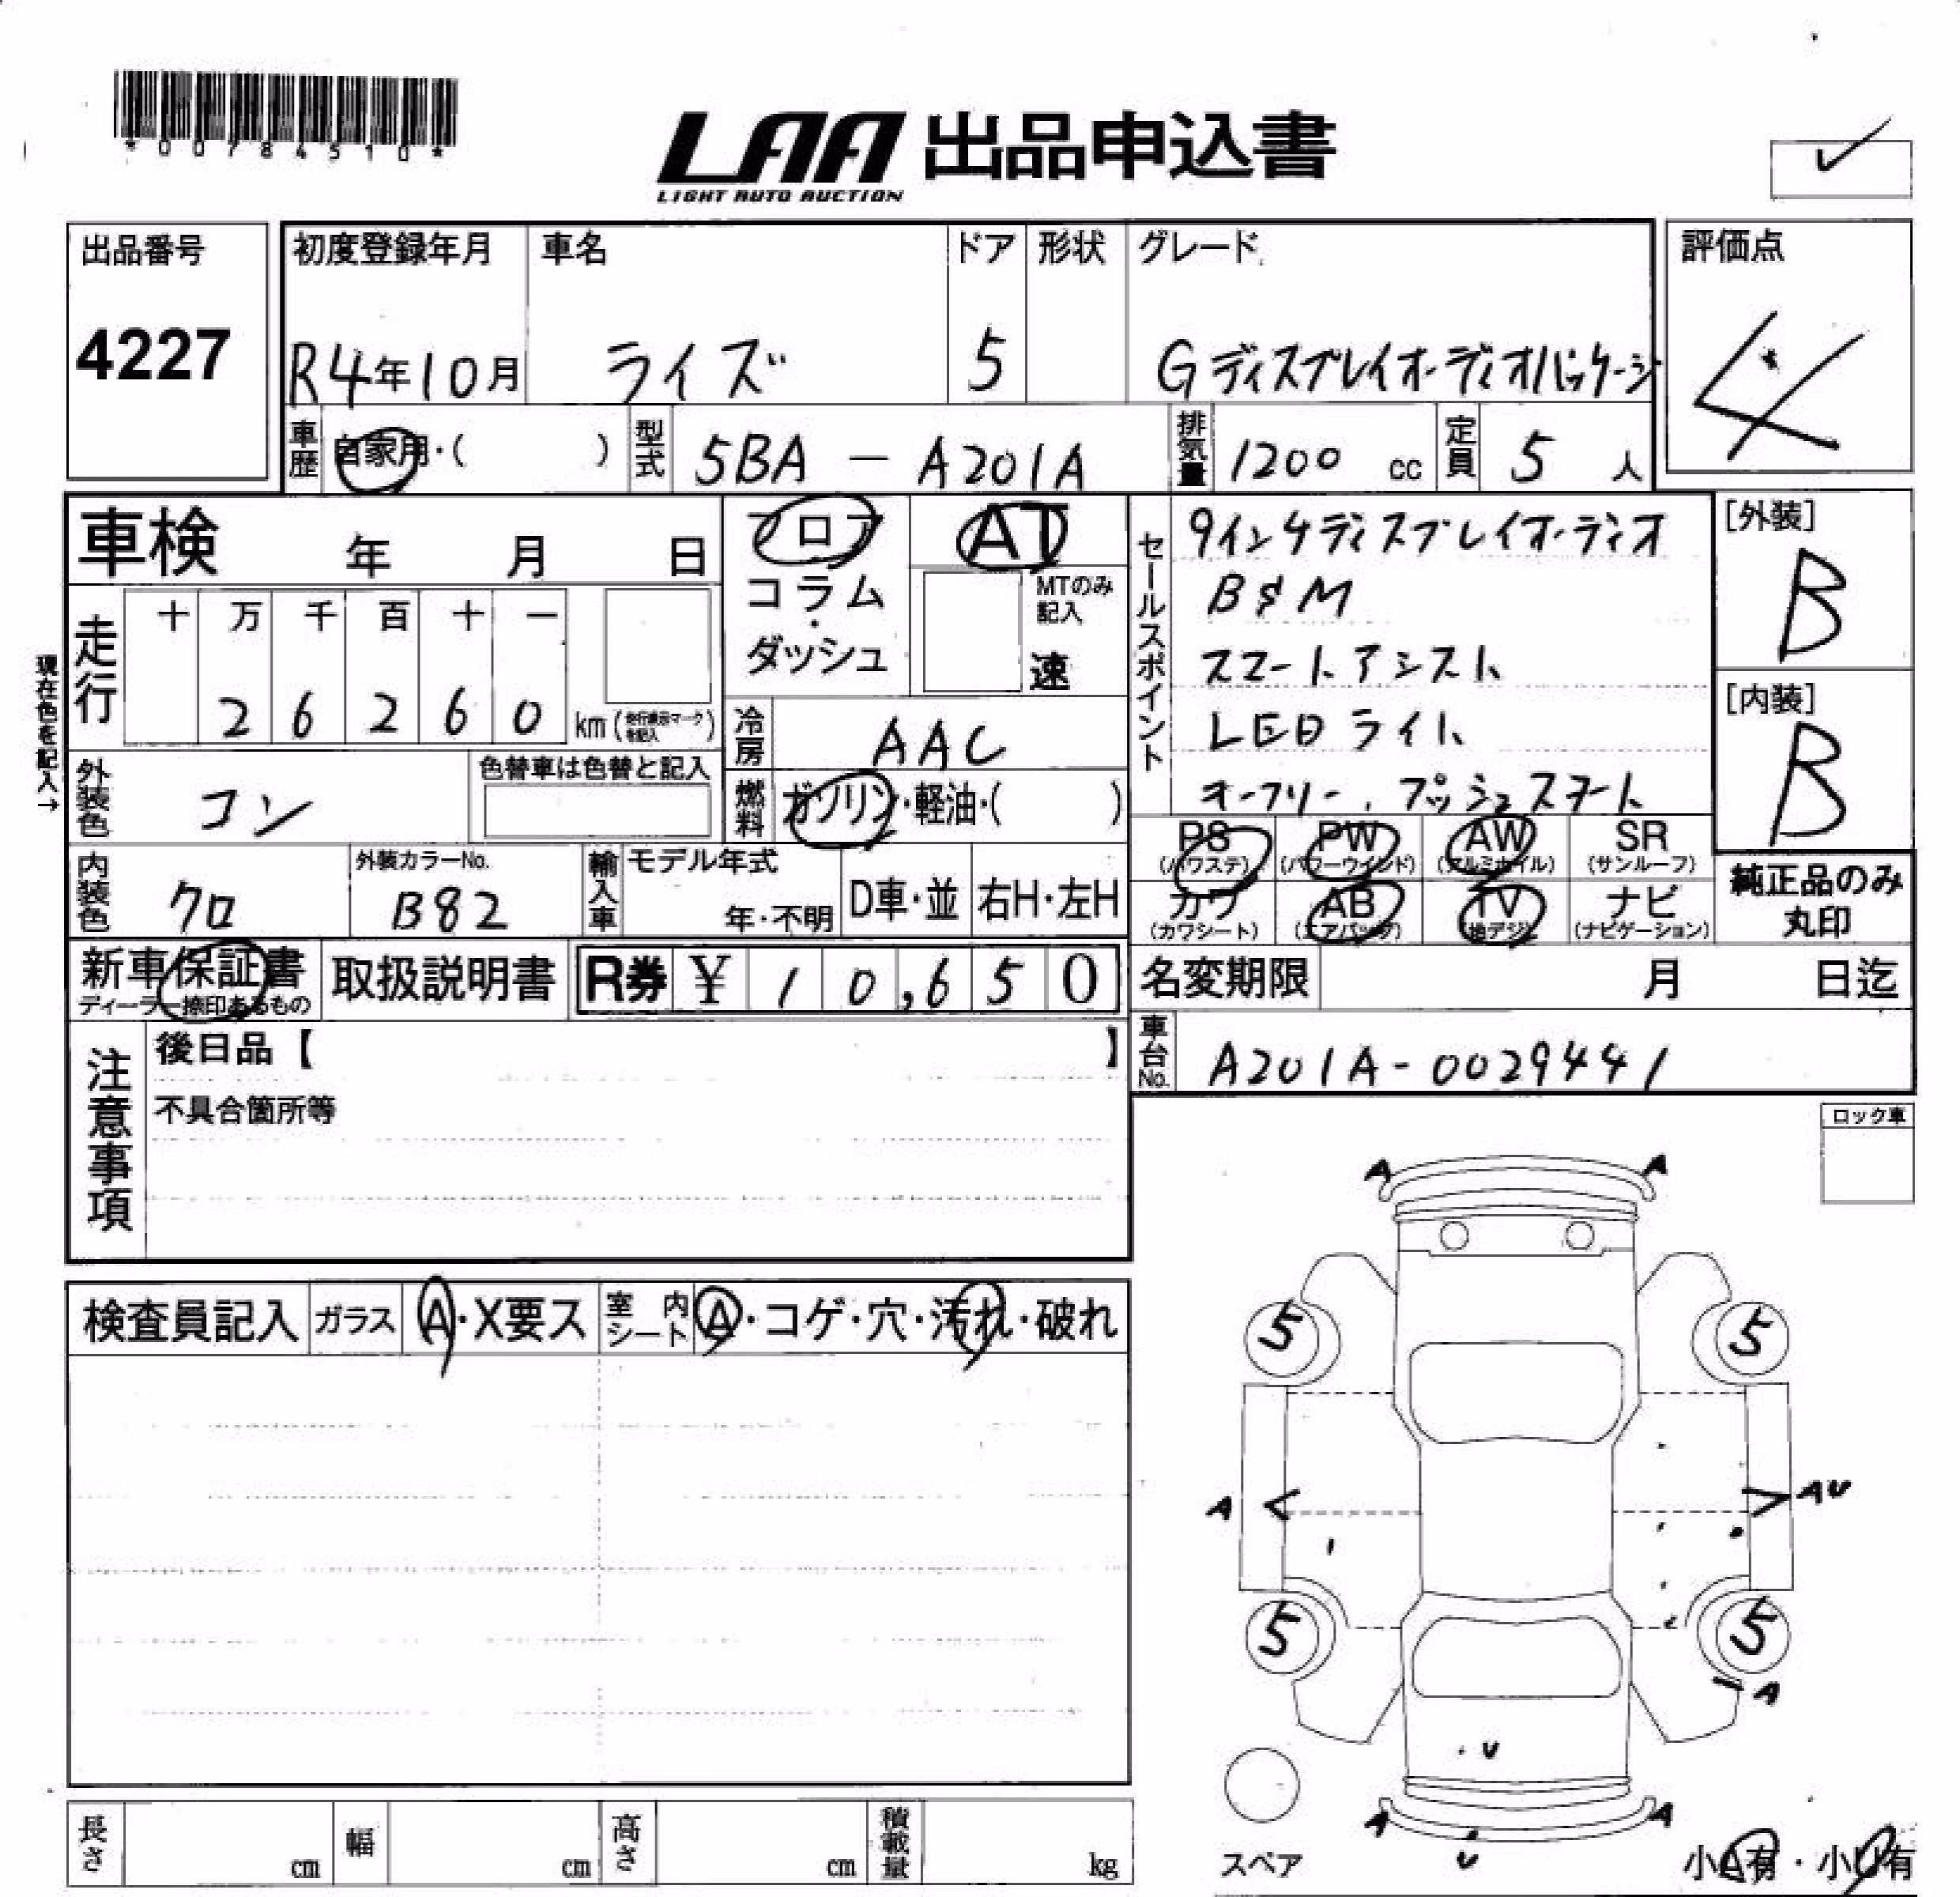 *00784510*
LAA 出品申込書
LIGHT AUTO AUCTION
出品番号
4227
初度登録年月
R4年10月
車名
ライズ
ドア
5
形状
グレード
Gディスプレイオーディオパッケージ
評価点
4
車歴
自家用・( )
型式
5BA - A201A
排気量
1200 cc
定員
5 人
車検 年 月 日
フロア
コラム
・
ダッシュ
AT
MTのみ
記入
速
セールスポイント
9インチディスプレイオーディオ
B&M
スマートアシスト
LEDライト
キーフリー、プッシュスタート
[外装]
B
[内装]
B
現在色を記入→
走行
十 万 千 百 十 一
2 6 2 6 0 km
冷房
AAC
外装色
コン
色替車は色替と記入
燃料
ガソリン・軽油・( )
内装色
クロ
外装カラーNo.
B82
輸入車
モデル年式
年・不明
D車・並
右H・左H
PS
(パワステ)
PW
(パワーウインド)
AW
(アルミホイル)
SR
(サンルーフ)
カワ
(カワシート)
AB
(エアバック)
TV
(地デジ)
ナビ
(ナビゲーション)
純正品のみ
丸印
新車保証書
ディーラー捺印あるもの
取扱説明書
R券 ¥ 10,650
名変期限 月 日迄
注意事項
後日品【 】
不具合箇所等
車台No.
A201A-0029441
ロック車
検査員記入
ガラス
A・X要ス
室内シート
A・コゲ・穴・汚れ・破れ
A A
5 5
A AU
5 5
A
U
A A
U
スペア
小A有・小U有
長さ cm
幅 cm
高さ cm
積載量 kg